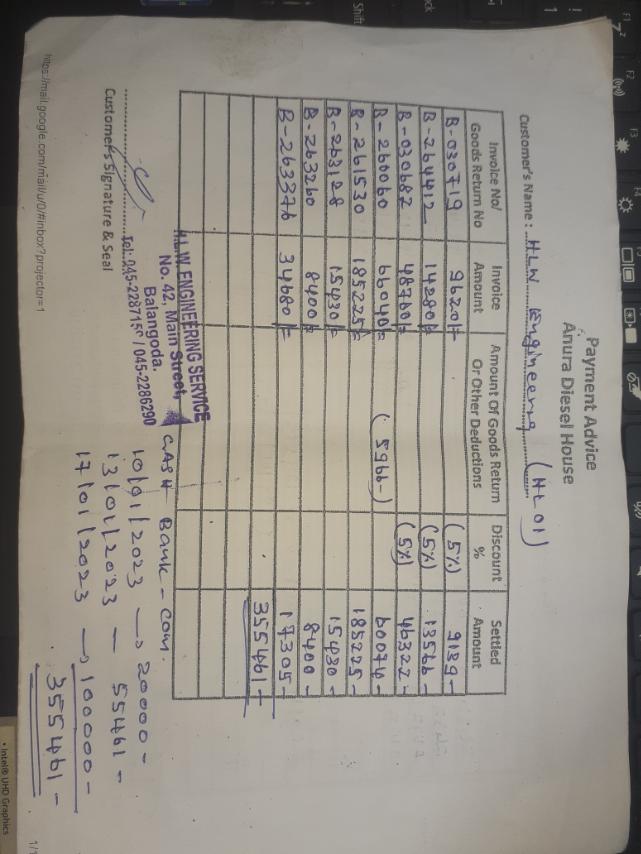 Payment Advice
Anura Diesel House
Customer's Name : HLW Engineering (HL01)
Invoice No/ Goods Return No | Invoice Amount | Amount Of Goods Return Or Other Deductions | Discount % | Settled Amount
B-030719 9620/- (5%) 9139-
B-264412 14280/- (5%) 13566-
B-030682 48760/- (5%) 46322-
B-260060 66040/- (5966-) 60074-
B-261530 185225/- 185225-
B-263128 15430/- 15430-
B-263260 8400/- 8400-
B-263376 34680/- 17305-
355461-
H.L.W. ENGINEERING SERVICE
No. 42, Main Street,
Balangoda.
Tel: 045-228715 / 045-2286290
Customers Signature & Seal
CASH Bank - com.
10/01/2023 → 20000-
13/01/2023 - 55461-
17/01/2023 → 100000-
355461-
https://mail.google.com/mail/u/0/#inbox?projector=1
1/1
Shift
Intel® UHD Graphics